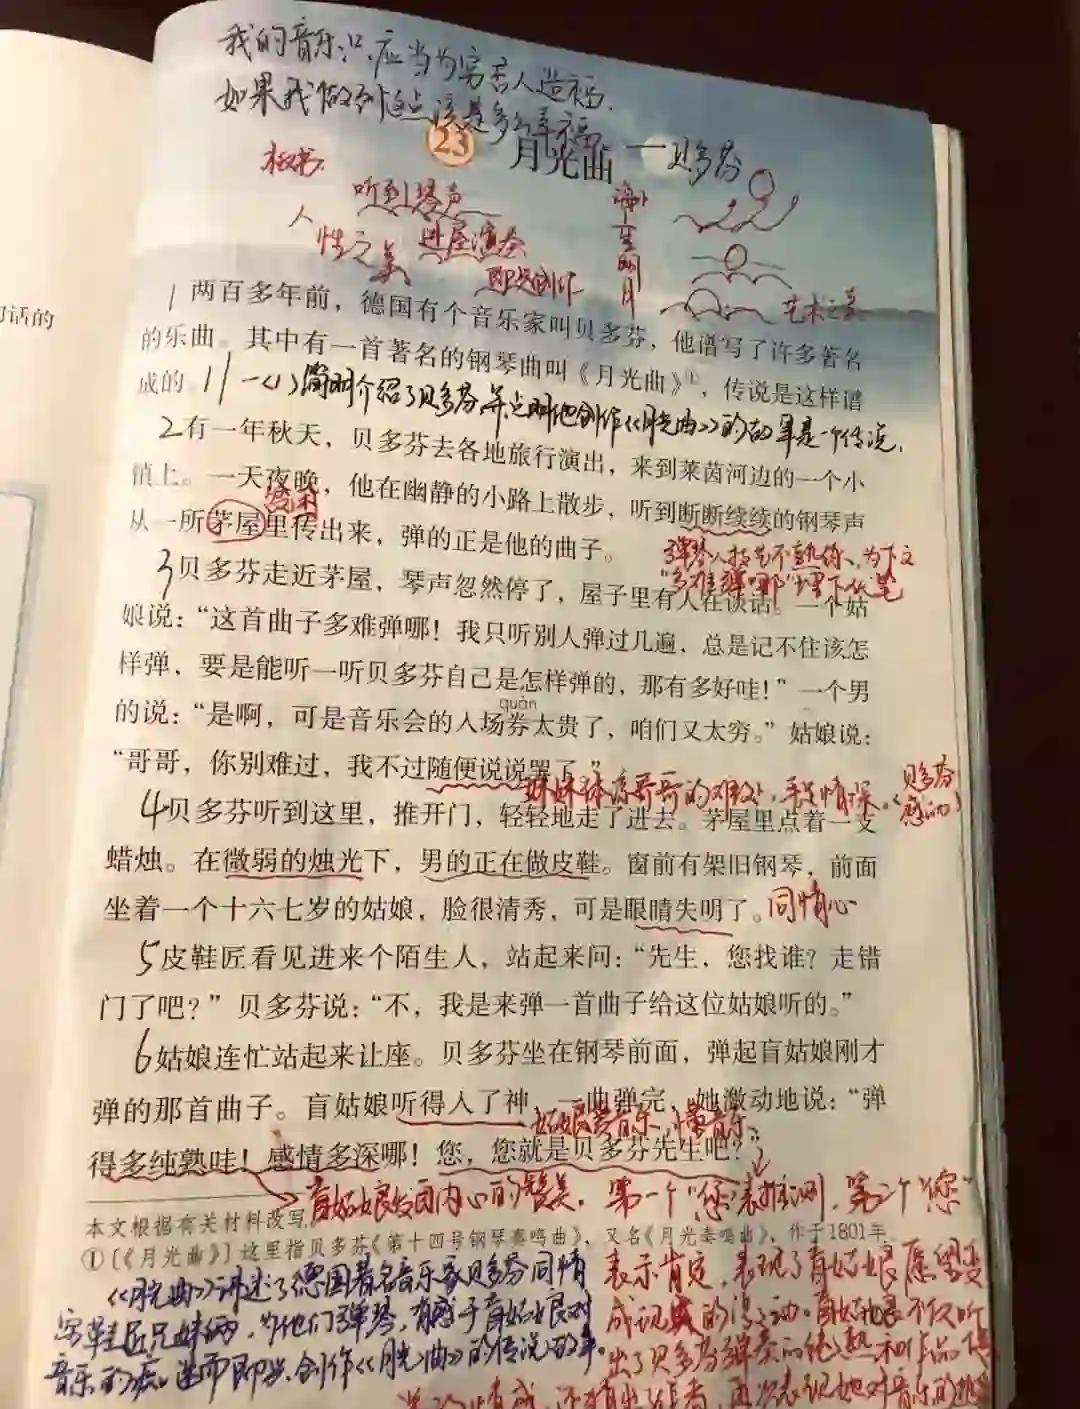 我的音乐只应当为穷苦人造福.
如果我做到这点该是多么幸福。
23 月光曲 — 贝多芬
板书
听到琴声
人性之美
进屋演奏
即兴创作
海上生明月
艺术之美
1 两百多年前，德国有个音乐家叫贝多芬，他谱写了许多著名
的乐曲。其中有一首著名的钢琴曲叫《月光曲》①，传说是这样谱
成的。// 一(1)简明介绍了贝多芬并点明他创作《月光曲》的故事是一个传说.
2 有一年秋天，贝多芬去各地旅行演出，来到莱茵河边的一个小
镇上。一天夜晚，他在幽静的小路上散步，听到断断续续的钢琴声
从一所茅屋里传出来，弹的正是他的曲子。
弹琴人技艺不熟练、为下文
“多难弹哪”埋下伏笔
3 贝多芬走近茅屋，琴声忽然停了，屋子里有人在谈话。一个姑
娘说：“这首曲子多难弹哪！我只听别人弹过几遍，总是记不住该怎
样弹，要是能听一听贝多芬自己是怎样弹的，那有多好哇！”一个男
quàn
的说：“是啊，可是音乐会的入场券太贵了，咱们又太穷。”姑娘说：
“哥哥，你别难过，我不过随便说说罢了。”
妹妹体凉哥哥的难处,手足情深。(贝多芬
感动)
4 贝多芬听到这里，推开门，轻轻地走了进去。茅屋里点着一支
蜡烛。在微弱的烛光下，男的正在做皮鞋。窗前有架旧钢琴，前面
坐着一个十六七岁的姑娘，脸很清秀，可是眼睛失明了。同情心
5 皮鞋匠看见进来个陌生人，站起来问：“先生，您找谁？走错
门了吧？”贝多芬说：“不，我是来弹一首曲子给这位姑娘听的。”
6 姑娘连忙站起来让座。贝多芬坐在钢琴前面，弹起盲姑娘刚才
弹的那首曲子。盲姑娘听得入了神，一曲弹完，她激动地说：“弹
姑娘爱音乐，懂音乐
得多纯熟哇！感情多深哪！您，您就是贝多芬先生吧？”
盲姑娘发自内心的赞美。第一个“您”表推测，第二个“您”
本文根据有关材料改写。
①〔《月光曲》〕这里指贝多芬《第十四号钢琴奏鸣曲》，又名《月光奏鸣曲》，作于1801年。
《月光曲》讲述了德国著名音乐家贝多芬同情
穷鞋匠兄妹俩，为他们弹琴，有感于盲姑娘对
音乐的痴迷而即兴创作《月光曲》的传说故事。
表示肯定，表现了盲姑娘愿望变
成现实的激动。盲姑娘不仅听
出了贝多芬弹奏的纯熟和作品
再次表现她对音乐的